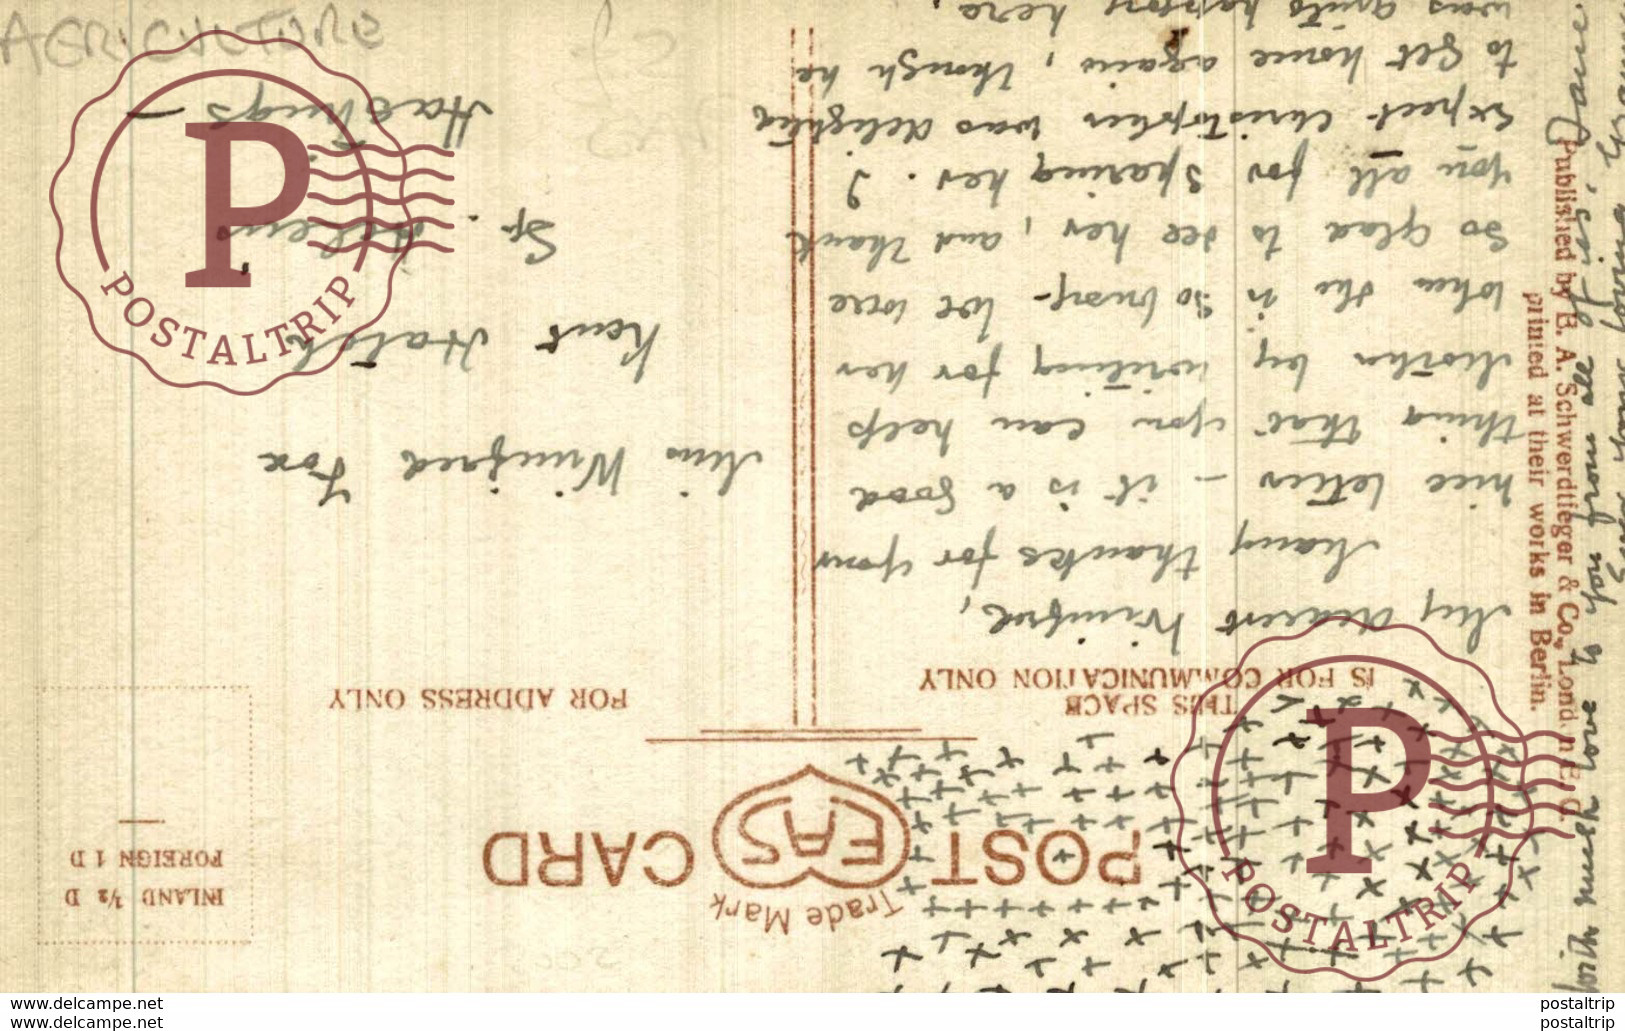 AGRICULTURE
INLAND ½ D
FOREIGN 1 D
Trade Mark
POST EAS CARD
THIS SPACE
IS FOR COMMUNICATION ONLY
FOR ADDRESS ONLY
My dearest Winifred,
Many thanks for your
nice letter – it is a good
thing that you can help
Mother by writing for her
when she is so busy. We were
so glad to see her, and thank
you all for sparing her. I
expect Christopher was delighted
to get home again, though he
was quite happy here,
with much love to you from all of us,
Your loving
Miss Winifred Fox
Kent Hatch
St. Helens
Hastings
Published by E. A. Schwerdtfeger & Co., London E.C.
printed at their works in Berlin.
POSTALTRIP
POSTALTRIP
www.delcampe.net
postaltrip
www.delcampe.net
postaltrip